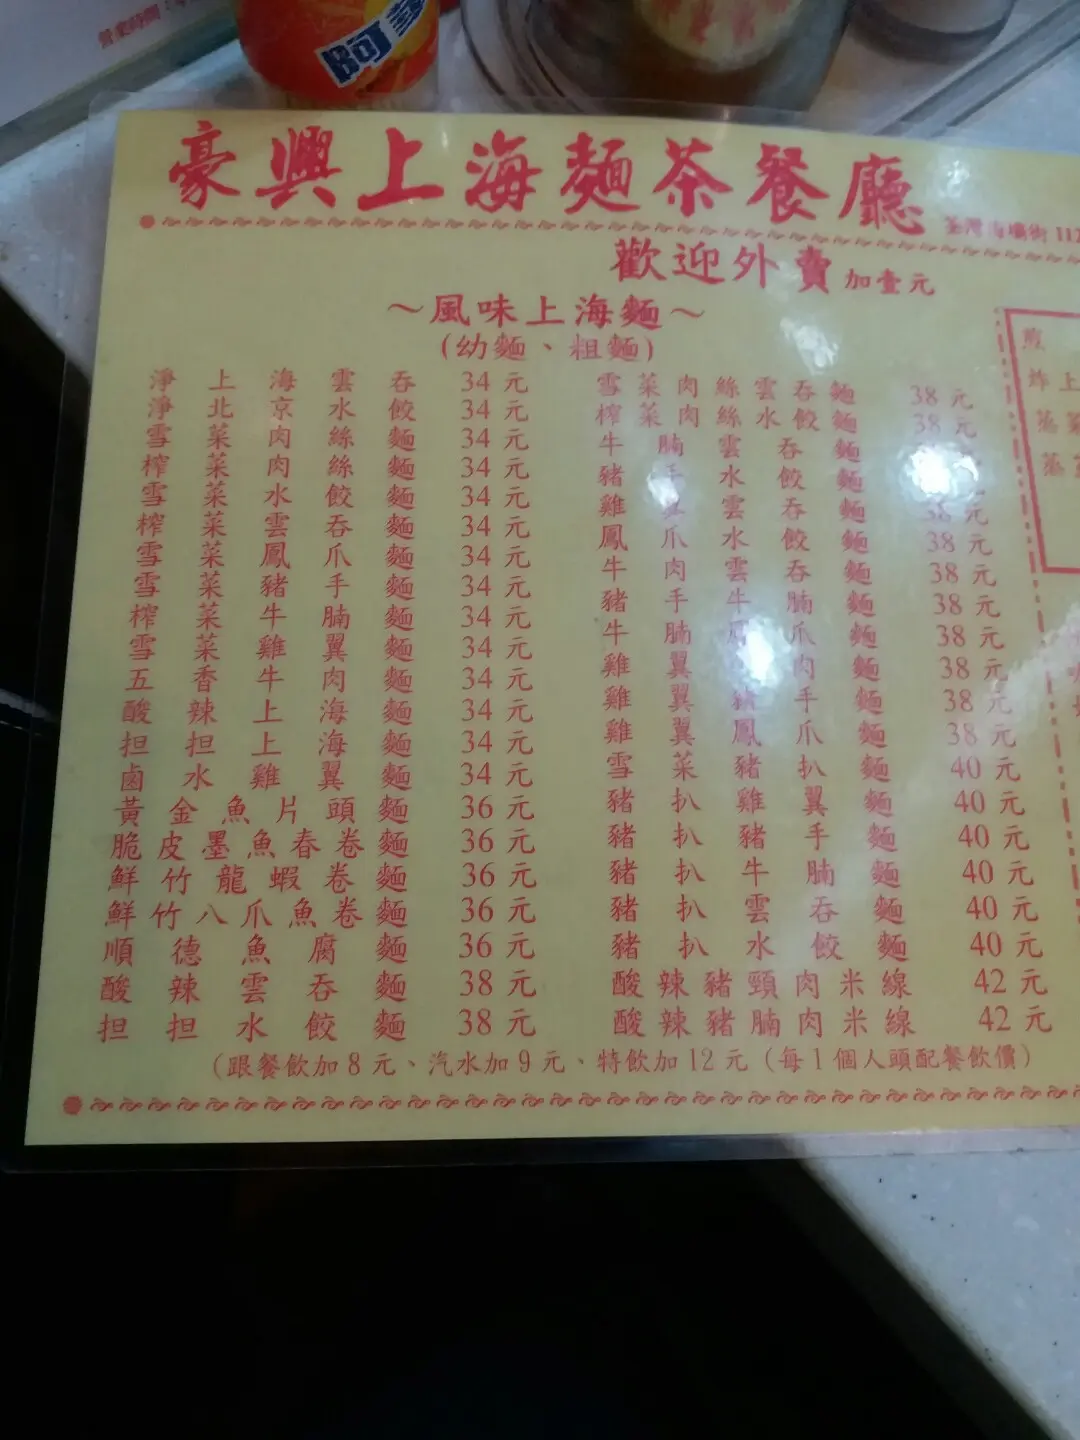 營業時間：
阿
豪興上海麵茶餐廳
荃灣海壩街 112
歡迎外賣 加壹元
～風味上海麵～
(幼麵、粗麵)
淨上海雲吞 34 元
淨北京水餃 34 元
雪菜肉絲麵 34 元
榨菜肉絲麵 34 元
雪菜水餃麵 34 元
榨菜雲吞麵 34 元
雪菜鳳爪麵 34 元
雪菜豬手麵 34 元
榨菜牛腩麵 34 元
雪菜雞翼麵 34 元
五香牛肉麵 34 元
酸辣上海麵 34 元
担担上海麵 34 元
鹵水雞翼麵 34 元
黃金魚片頭麵 36 元
脆皮墨魚春卷麵 36 元
鮮竹龍蝦卷麵 36 元
鮮竹八爪魚卷麵 36 元
順德魚腐麵 36 元
酸辣雲吞麵 38 元
担担水餃麵 38 元
雪菜肉絲雲吞麵 38 元
榨菜肉絲水餃麵 38 元
牛腩雲吞麵 元
豬手水餃麵
雞翼雲吞麵 38 元
鳳爪水餃麵 38 元
牛肉雲吞麵 38 元
豬手牛腩麵 38 元
牛腩鳳爪麵 38 元
雞翼肉麵 38 元
雞翼豬手麵 38 元
雞翼鳳爪麵 38 元
雪菜豬扒麵 40 元
豬扒雞翼麵 40 元
豬扒豬手麵 40 元
豬扒牛腩麵 40 元
豬扒雲吞麵 40 元
豬扒水餃麵 40 元
酸辣豬頸肉米線 42 元
酸辣豬腩肉米線 42 元
(跟餐飲加 8 元、汽水加 9 元、特飲加 12 元 (每 1 個人頭配餐飲價)
煎
炸上
蒸
蒸